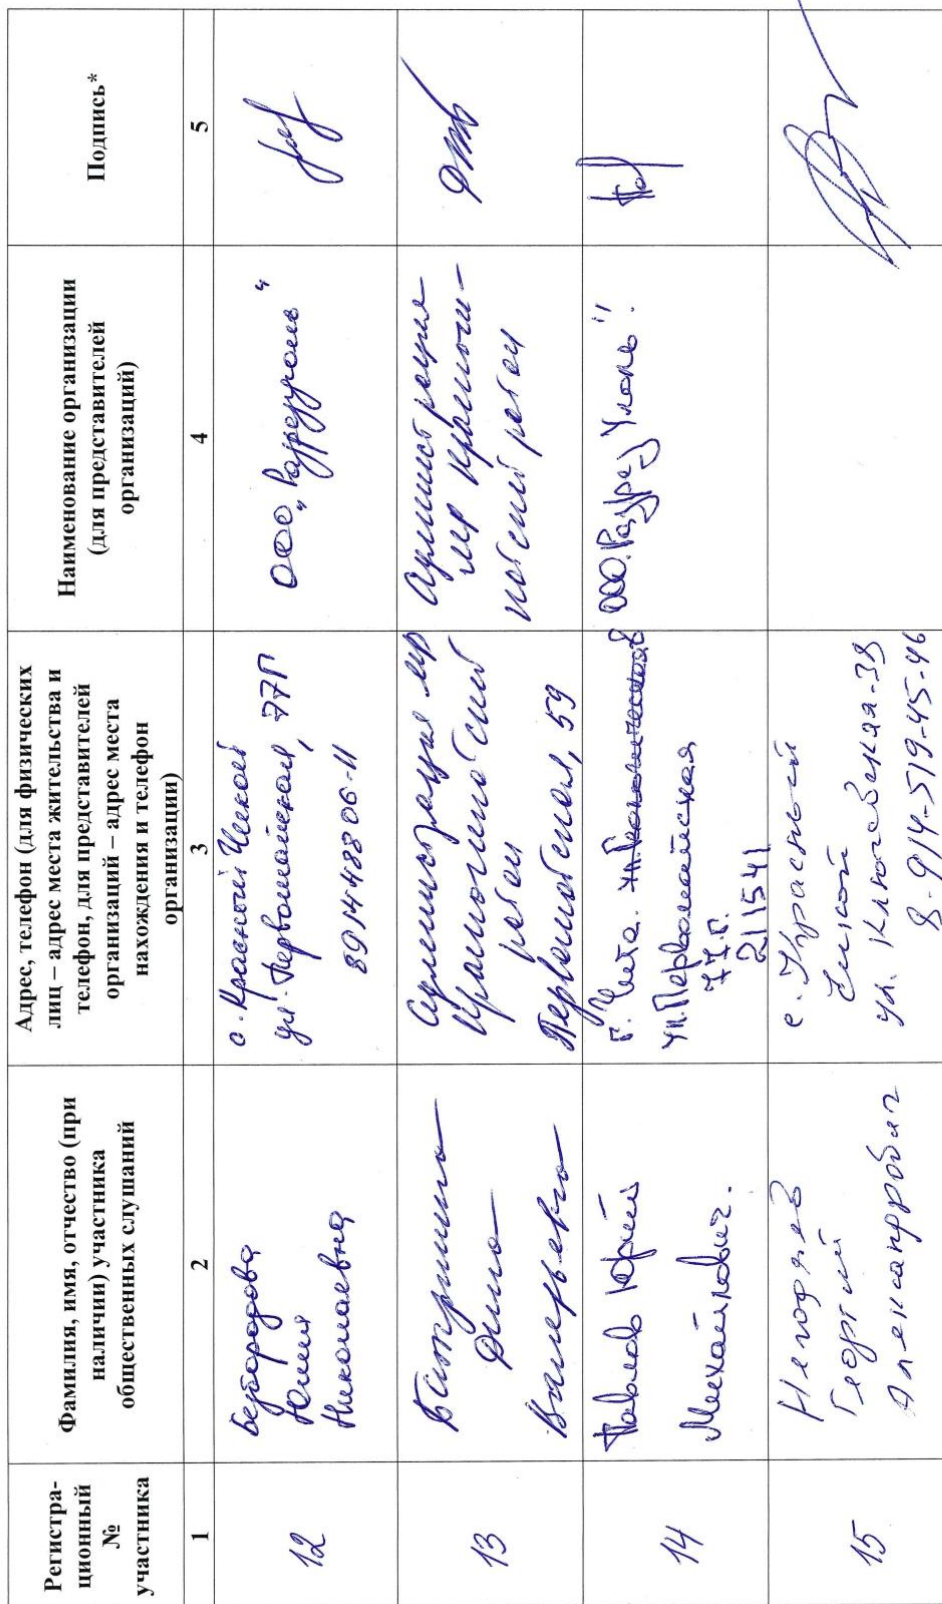 Регистра-
ционный
№
участника
Фамилия, имя, отчество (при
наличии) участника
общественных слушаний
Адрес, телефон (для физических
лиц – адрес места жительства и
телефон, для представителей
организаций – адрес места
нахождения и телефон
организации)
Наименование организации
(для представителей
организаций)
Подпись*
1
2
3
4
5
12
Безбородова
Юлия
Николаевна
с. Красный Чикой
ул. Первомайская, 77П
8914488 06-11
ООО
13
Дина
Валерьевна
Администрация мр
район
59
Администрация
мр
район
14
Павлов Юрий
Михайлович.
г. Чита.
ул. Первомайская
77.п.
211541
ООО "Разрез Уголь".
15
Негодяев
Георгий
Александрович
с. Красный
Чикой
ул. Ключевская-39
8-914-519-45-46